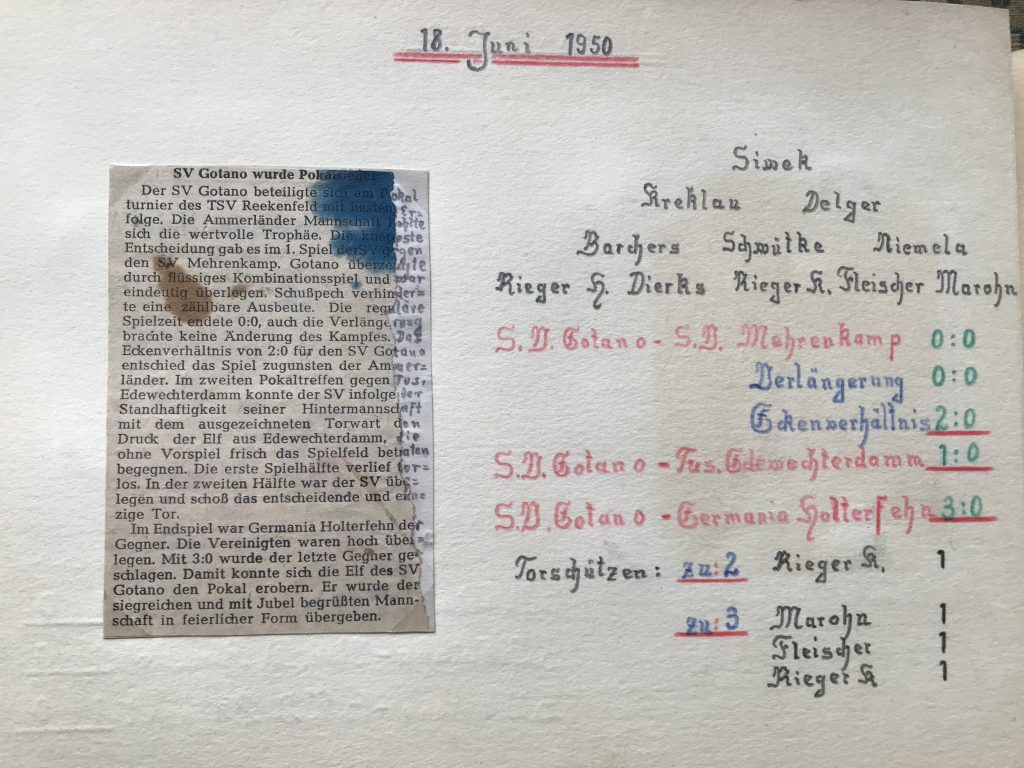 18. Juni 1950
SV Gotano wurde Pokalsieger
Der SV Gotano beteiligte sich am Pokal
turnier des TSV Reekenfeld mit bestem Er-
folge. Die Ammerländer Mannschaft holte
sich die wertvolle Trophäe. Die knappste
Entscheidung gab es im 1. Spiel der SV gegen
den SV Mehrenkamp. Gotano überzeugte
durch flüssiges Kombinationsspiel und war
eindeutig überlegen. Schußpech verhinder-
te eine zählbare Ausbeute. Die reguläre
Spielzeit endete 0:0, auch die Verlängerung
brachte keine Änderung des Kampfes. Das
Eckenverhältnis von 2:0 für den SV Gotano
entschied das Spiel zugunsten der Ammer-
länder. Im zweiten Pokaltreffen gegen Tus.
Edewechterdamm konnte der SV infolge der
Standhaftigkeit seiner Hintermannschaft
mit dem ausgezeichneten Torwart den
Druck der Elf aus Edewechterdamm, die
ohne Vorspiel frisch das Spielfeld betraten
begegnen. Die erste Spielhälfte verlief tor-
los. In der zweiten Hälfte war der SV über-
legen und schoß das entscheidende und ein-
zige Tor.
Im Endspiel war Germania Holterfehn der
Gegner. Die Vereinigten waren hoch über-
legen. Mit 3:0 wurde der letzte Gegner ge-
schlagen. Damit konnte sich die Elf des SV
Gotano den Pokal erobern. Er wurde der
siegreichen und mit Jubel begrüßten Mann-
schaft in feierlicher Form übergeben.
Simek
Kreklau Delger
Barchers Schwütke Niemela
Rieger H. Dierks Rieger K. Fleischer Marohn
S.V. Gotano - S.V. Mehrenkamp 0:0
Verlängerung 0:0
Eckenverhältnis 2:0
S.V. Gotano - Tus. Edewechterdamm 1:0
S.V. Gotano - Germania Holterfehn 3:0
Torschützen: zu: 2 Rieger K. 1
zu: 3 Marohn 1
Fleischer 1
Rieger K 1